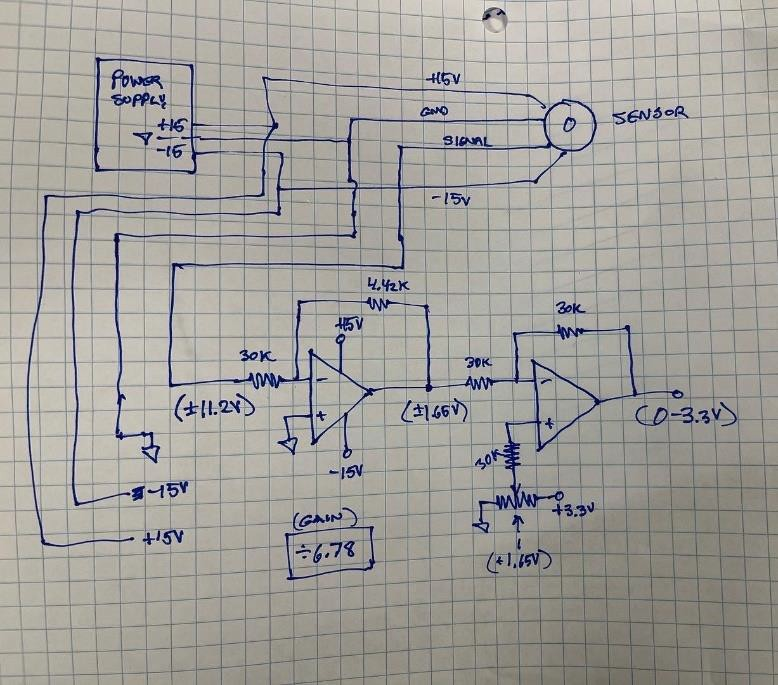 POWER
SUPPLY
+15
-15
+15V
GND
SIGNAL
-15V
SENSOR
4.42K
+15V
30K
(±11.2V)
-15V
(±1.65V)
30K
30K
(0-3.3V)
30K
+3.3V
(+1.65V)
-15V
+15V
(GAIN)
÷6.78